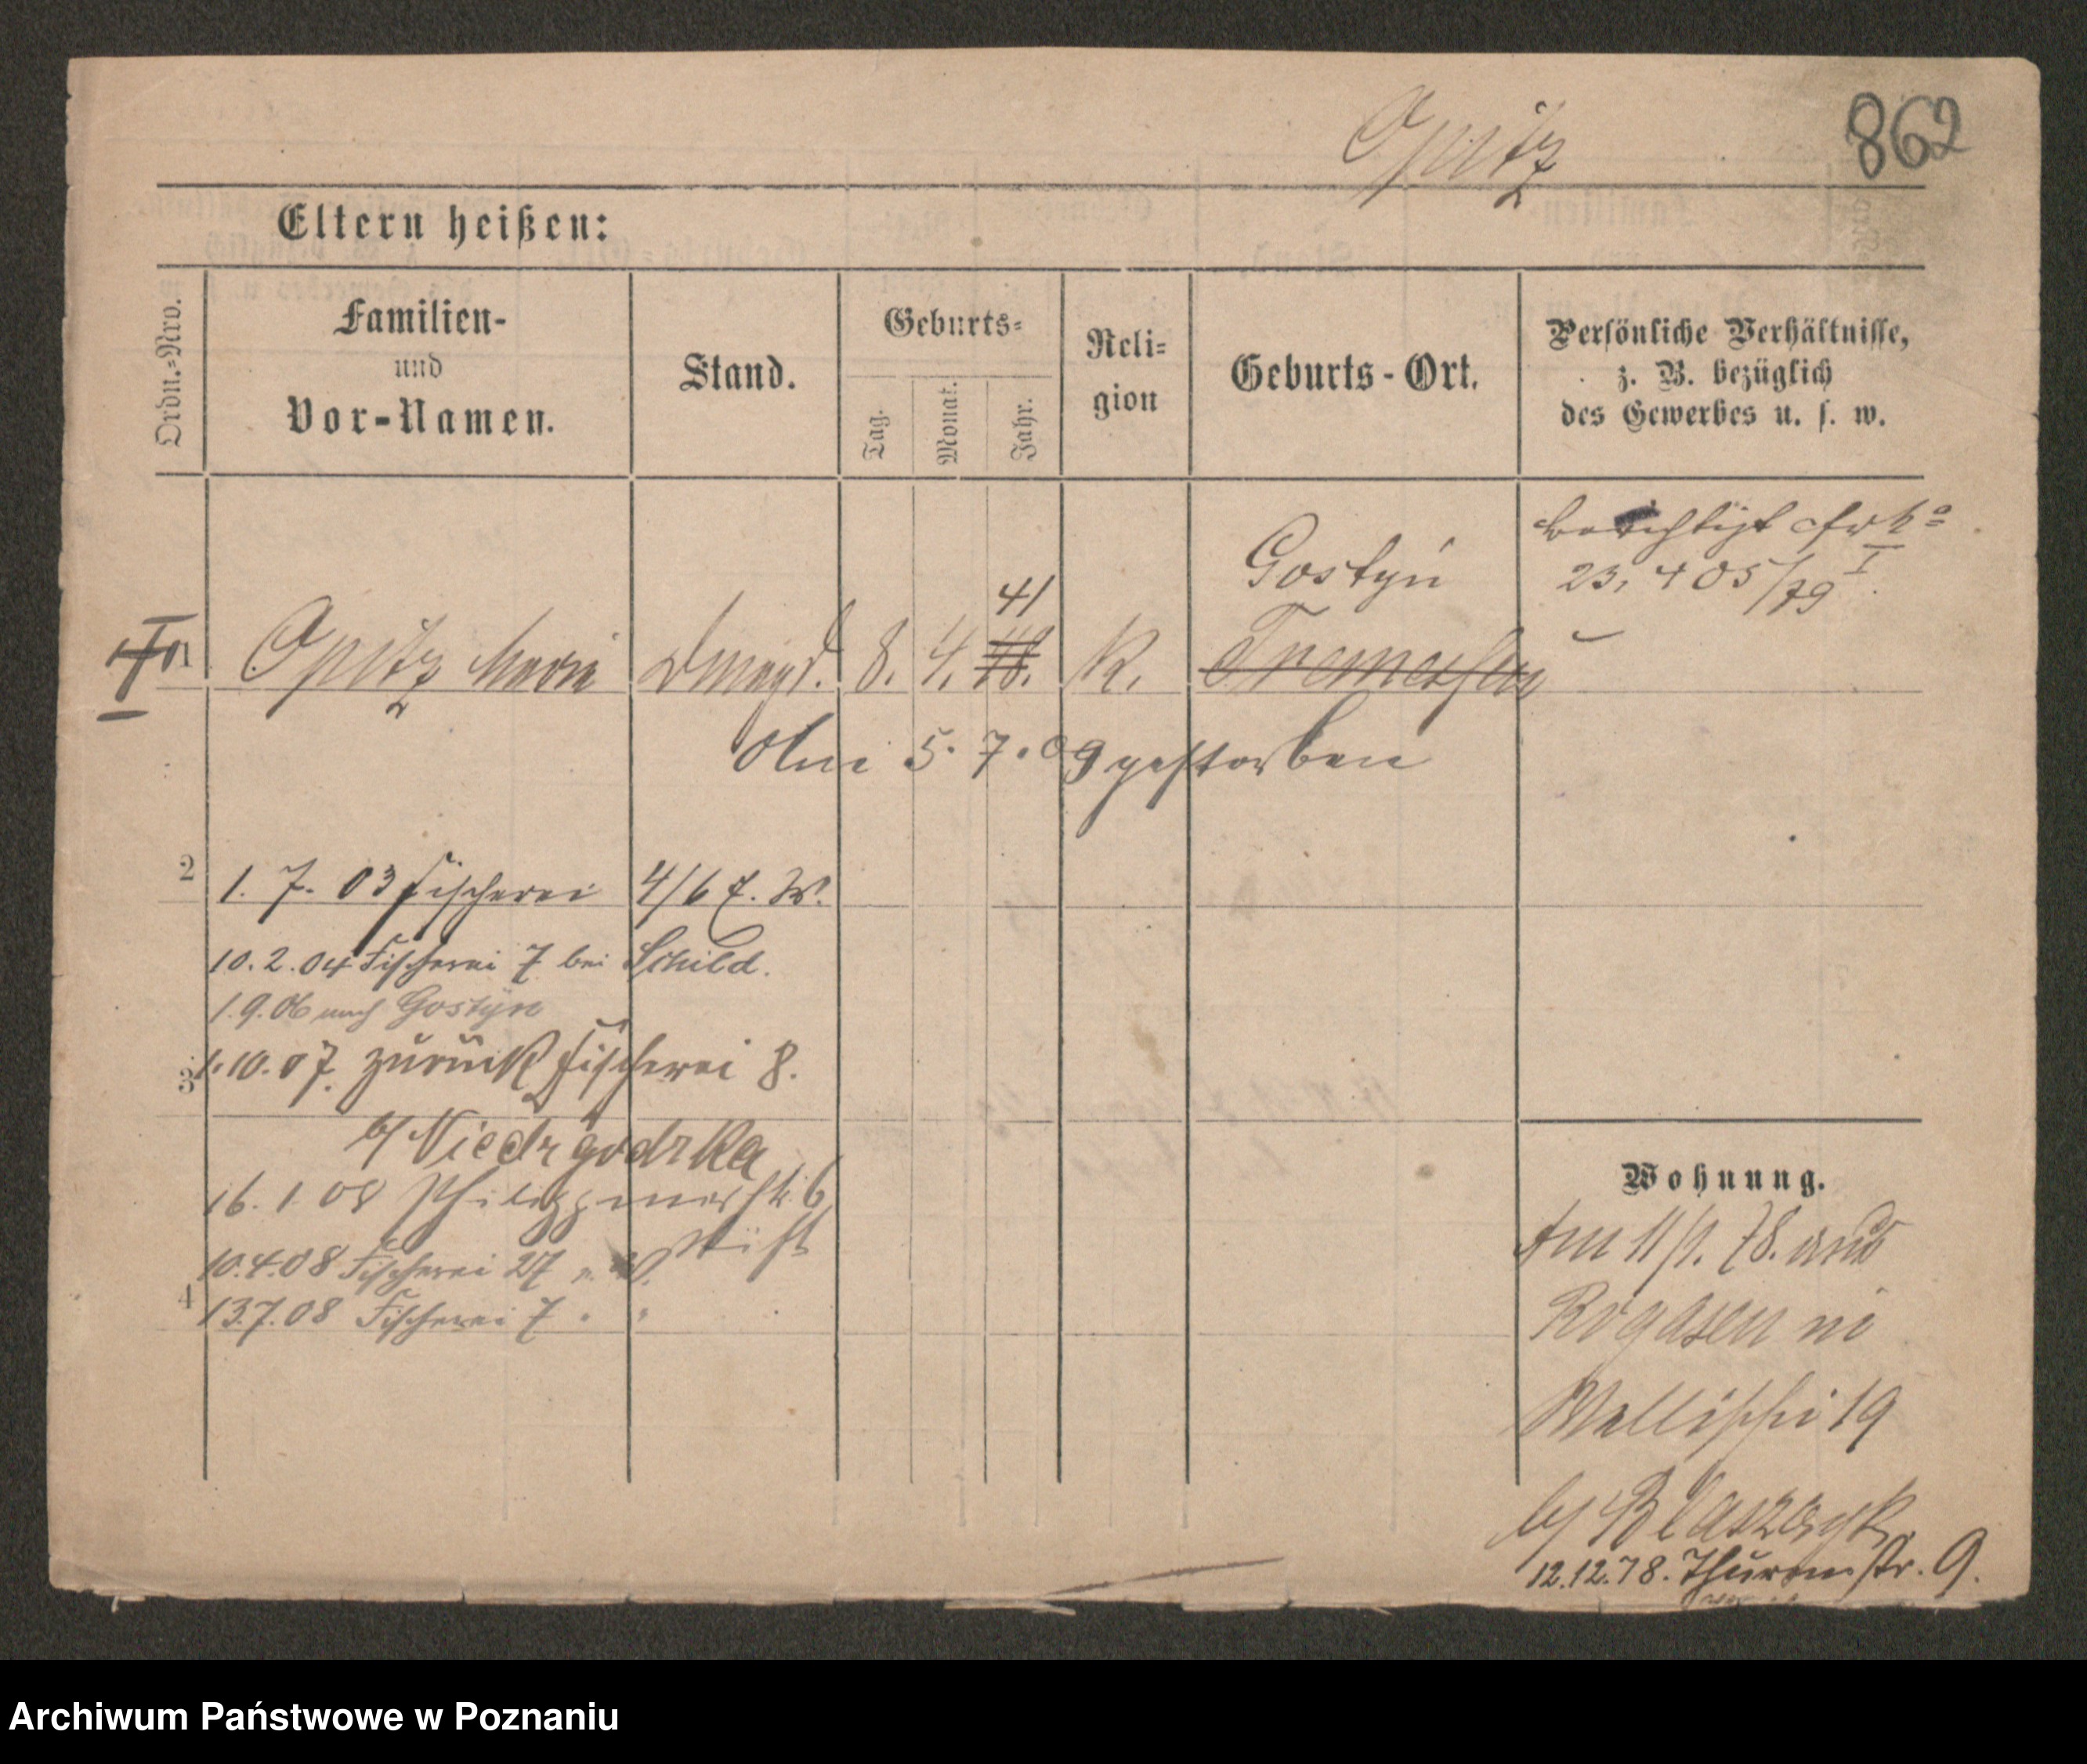 862
Opitz
Eltern heißen:
Ordn.=Nro.
Familien-
und
Vor-Namen.
Stand.
Geburts=
Tag.
Monat.
Jahr.
Reli=
gion
Geburts-Ort.
Persönliche Verhältnisse,
z. B. bezüglich
des Gewerbes u. s. w.
berichtigt
23, 405/79 I.
Gostyń
41
1 Opitz Marie Dmagd. 8. 4. 48. K. Tremessen
Am 5. 7. 09 gestorben
2
1. 7. 03 Fischerei 4/6 b. W.
10.2.04 Fischerei 7 bei Schild.
1.9.06 nach Gostyn
3
1.10.07. zurück Fischerei 8.
b/ Niedzgodzka
16. 1 08 6
Stift
10.4.08 Fischerei 27
4
13.7.08 Fischerei 7 " "
Wohnung.
Am 11/1. 78. aus
Rogasen in
Wallischei 19
b/ Blaszczyk
12.12.78. Thurmstr. 9.
Archiwum Państwowe w Poznaniu